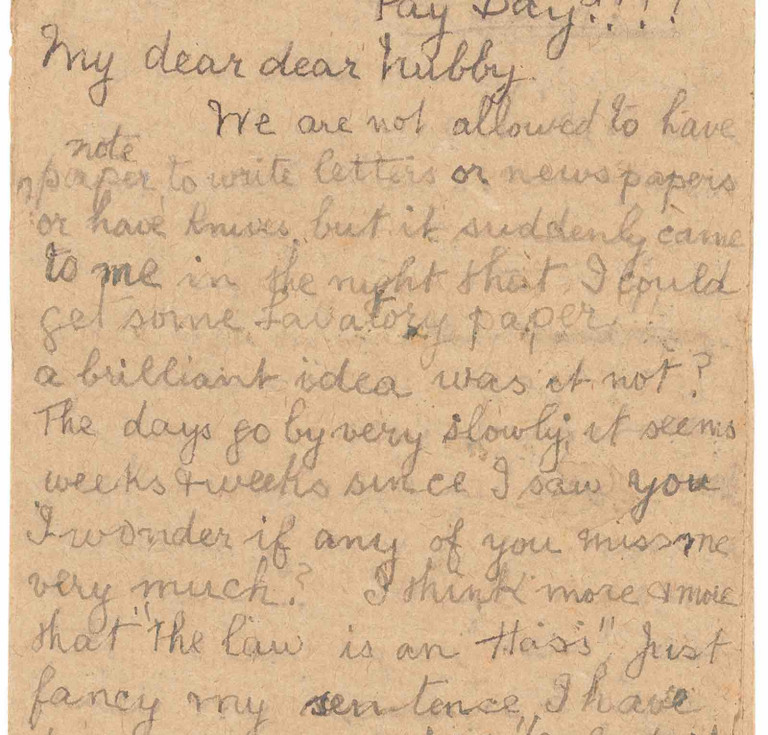 Pay Day!!!!
My dear dear hubby
We are not allowed to have
note
paper, to write letters or newspapers
or have knives, but it suddenly came
to me in the night that I could
get some Lavatory paper
a brilliant idea was it not?
The days go by very slowly, it seems
weeks & weeks since I saw you
I wonder if any of you miss me
very much? I think more & more
that "the law is an Hass" Just
fancy my sentence, I have